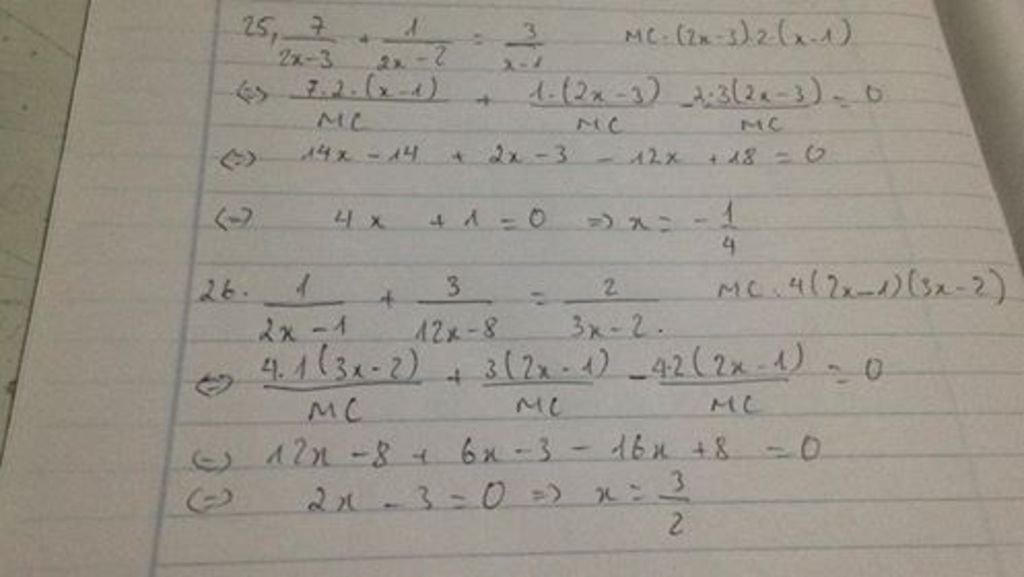 25, 7/(2x-3) + 1/(2x-2) = 3/(x-1) MC.(2x-3).2(x-1)
<=> 7.2.(x-1)/MC + 1.(2x-3)/MC - 2.3(2x-3)/MC = 0
<=> 14x - 14 + 2x - 3 - 12x + 18 = 0
<=> 4x + 1 = 0 => x = -1/4
26. 1/(2x-1) + 3/(12x-8) = 2/(3x-2). MC.4(2x-1)(3x-2)
<=> 4.1(3x-2)/MC + 3(2x-1)/MC - 4.2(2x-1)/MC = 0
<=> 12x - 8 + 6x - 3 - 16x + 8 = 0
<=> 2x - 3 = 0 => x = 3/2